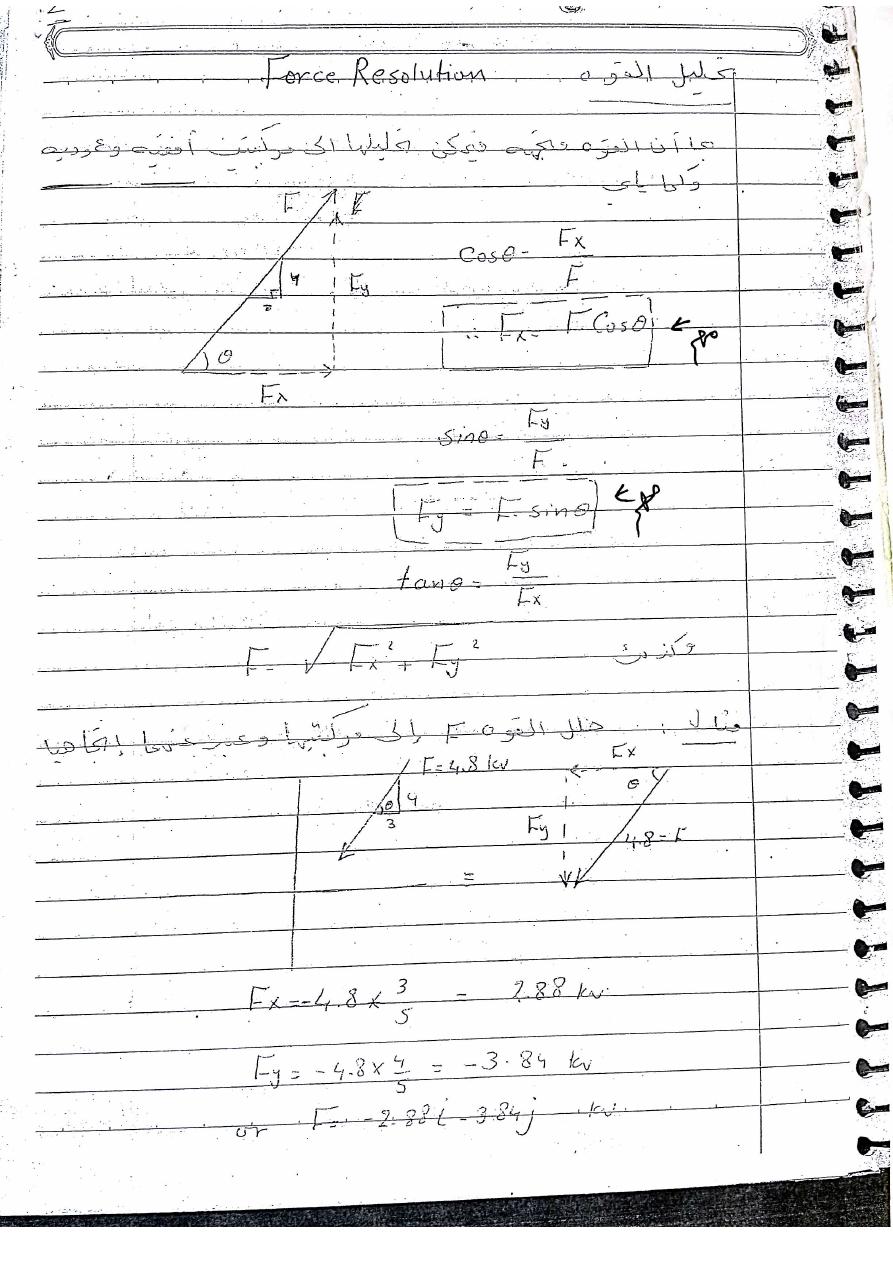 Force Resolution تحليل القوه
بما أن القوه متجهه فيمكن تحليلها الى مركبتين أفقيه وعموديه
وكما يأتي
F
Fy
4
θ
Fx
Cosθ = Fx / F
∴ Fx = F Cosθ
sinθ = Fy / F
Fy = F. sinθ
tanθ = Fy / Fx
وكذلك F = √ Fx² + Fy²
مثال : حلل القوه F إلى مركبتيها وعبر عنها إتجاهيا
F=4.8 kN
θ 4
3
=
Fx
θ
Fy
4.8 = F
Fx = -4.8 × 3/5 = 2.88 kN
Fy = -4.8 × 4/5 = -3.84 kN
or F = -2.88i - 3.84j kN